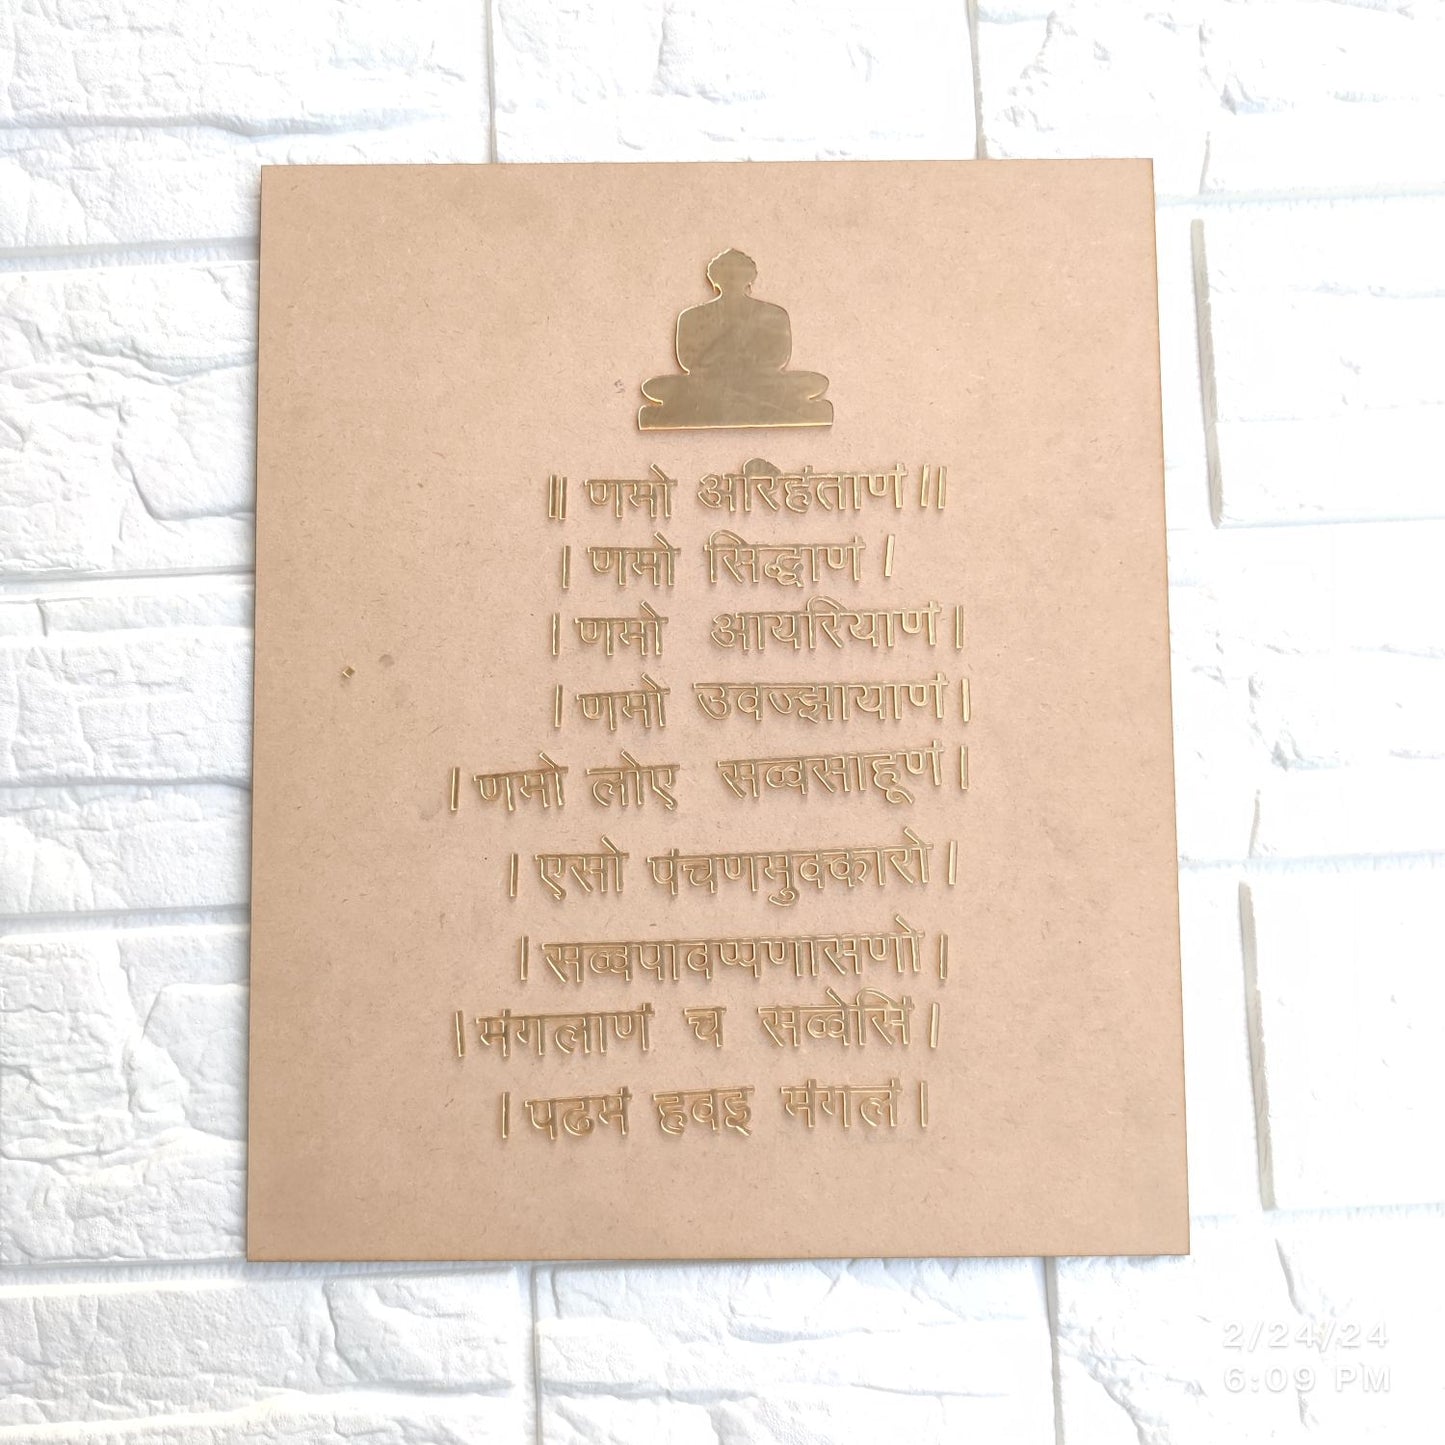 ॥ णमो अरिहंताणं ॥
। णमो सिद्धाणं ।
। णमो आयरियाणं ।
। णमो उवज्झायाणं ।
। णमो लोए सव्वसाहूणं ।
। एसो पंचणमुक्कारो ।
। सव्वपावप्पणासणो ।
। मंगलाणं च सव्वेसिं ।
। पढमं हवइ मंगलं ।
2/24/24
6:09 PM